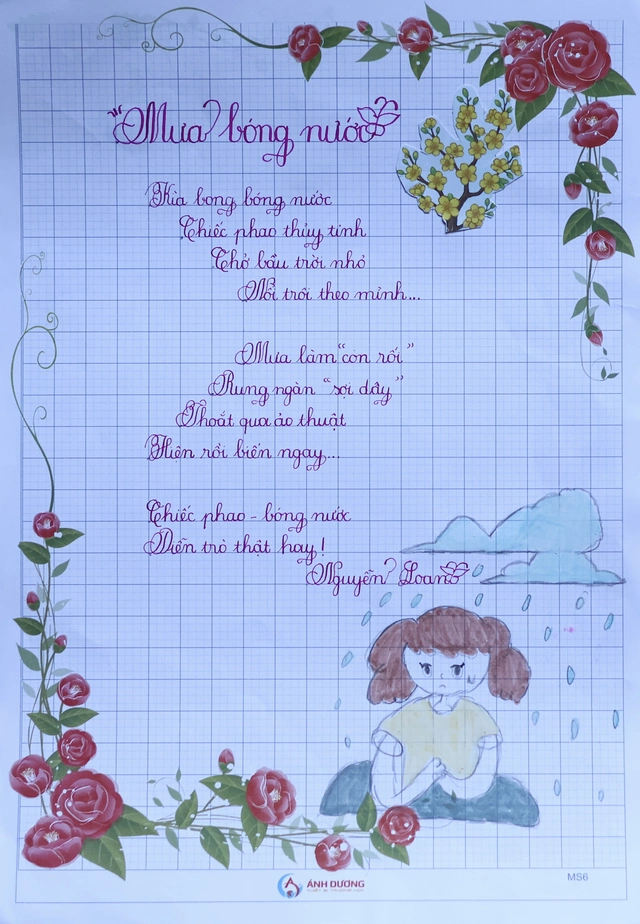 "Mưa bóng nước"
Kìa bong bóng nước
Chiếc phao thủy tinh
Chở bầu trời nhỏ
Nổi trôi theo mình...
Mưa làm "con rối"
Rung ngàn "sợi dây"
Thoắt qua ảo thuật
Hiện rồi biến ngay...
Chiếc phao - bóng nước
Diễn trò thật hay!
Nguyễn Loan
ÁNH DƯƠNG
MS6